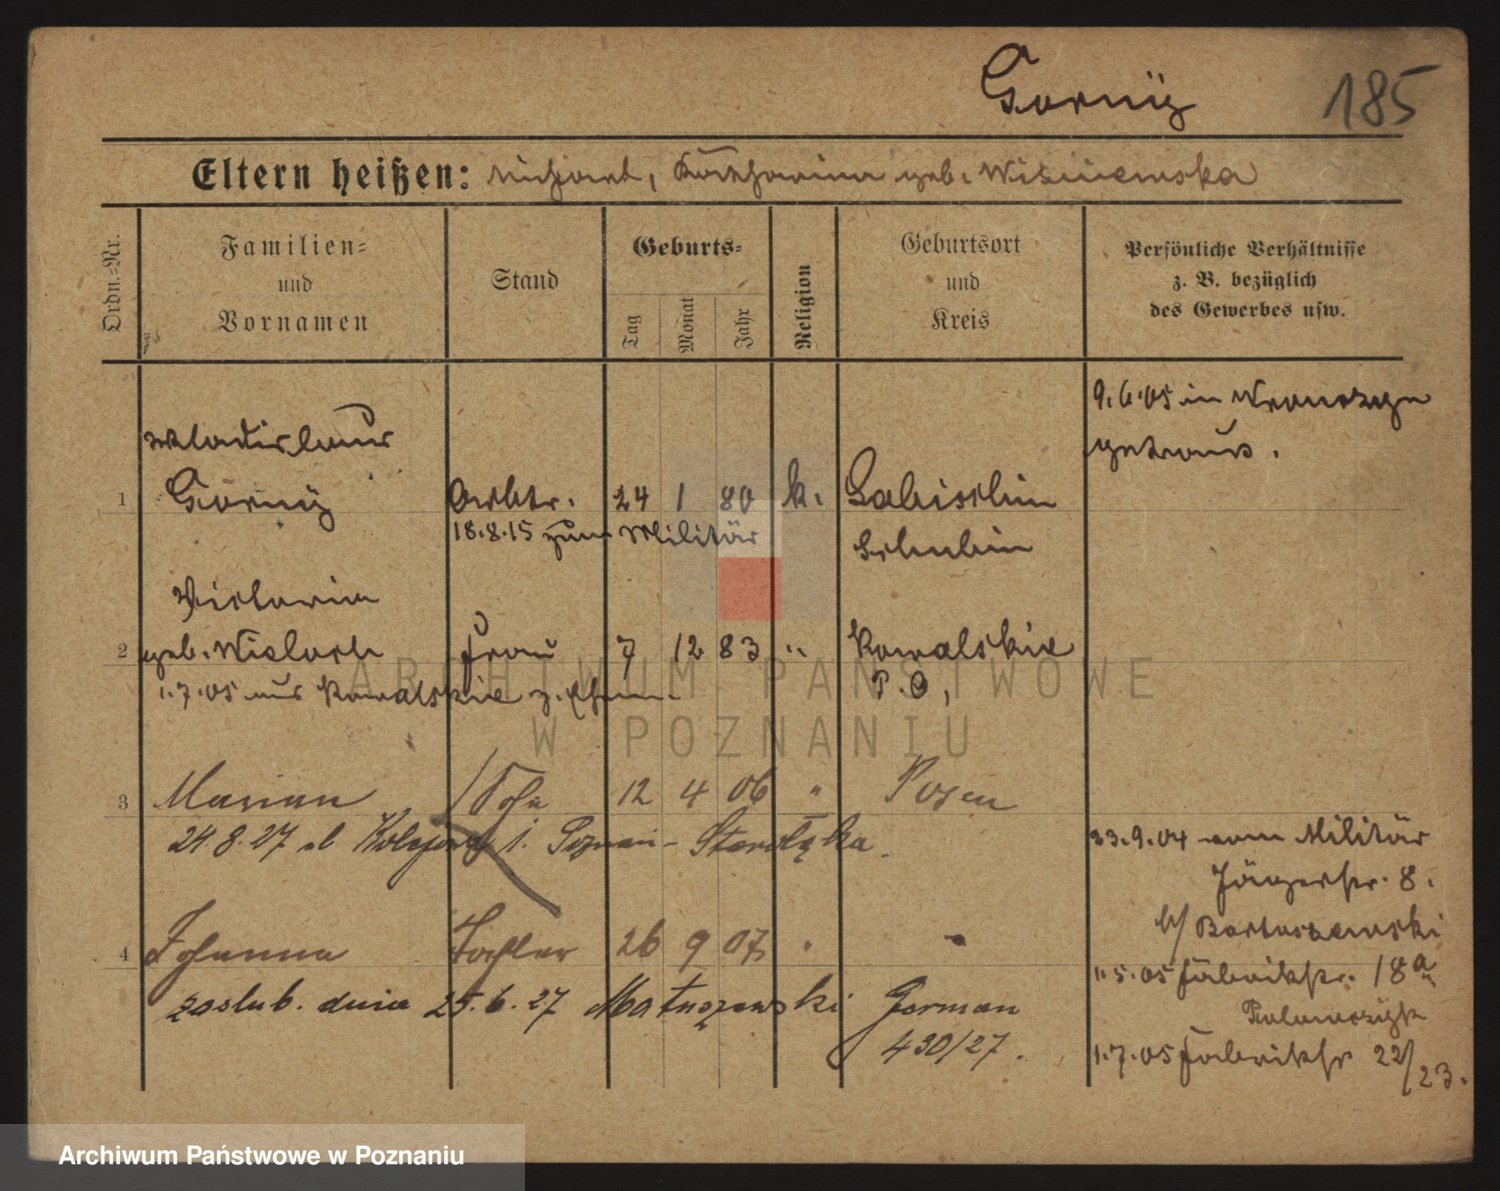 Gorniÿ 185
Eltern heißen: Richart, Katharina geb. Wisniewska
Ordn.-Nr.
Familien-
und
Vornamen
Stand
Geburts-
Tag
Monat
Jahr
Religion
Geburtsort
und
Kreis
Persönliche Verhältnisse
z. B. bezüglich
des Gewerbes usw.
9.6.05 in Wronczyn
getraut.
Wladislaus
1 Gorniÿ Arbtr. 24 1 80 k. Labischin
18.8.15 zum Militär Schubin
Victoria
2 geb. Wieloch Frau 7 12 83 " Kowalskie
1.7.05 aus Kowalskie z. P.O.
3 Marian Sohn 12 4 06 " Posen
24.8.27 Kolejowa Poznań-Starołęka
23.9.04 vom Militär
Jägerstr. 8.
b/ Bartuszewski
4 Johanna Tochter 26 9 07 " "
1.5.05 Fabrikstr. 18a
zaślub. dnia 25.6.27 Matuszewski German
430/27.
1.7.05 Fabrikstr 22/23.
ARCHIWUM PAŃSTWOWE
W POZNANIU
Archiwum Państwowe w Poznaniu